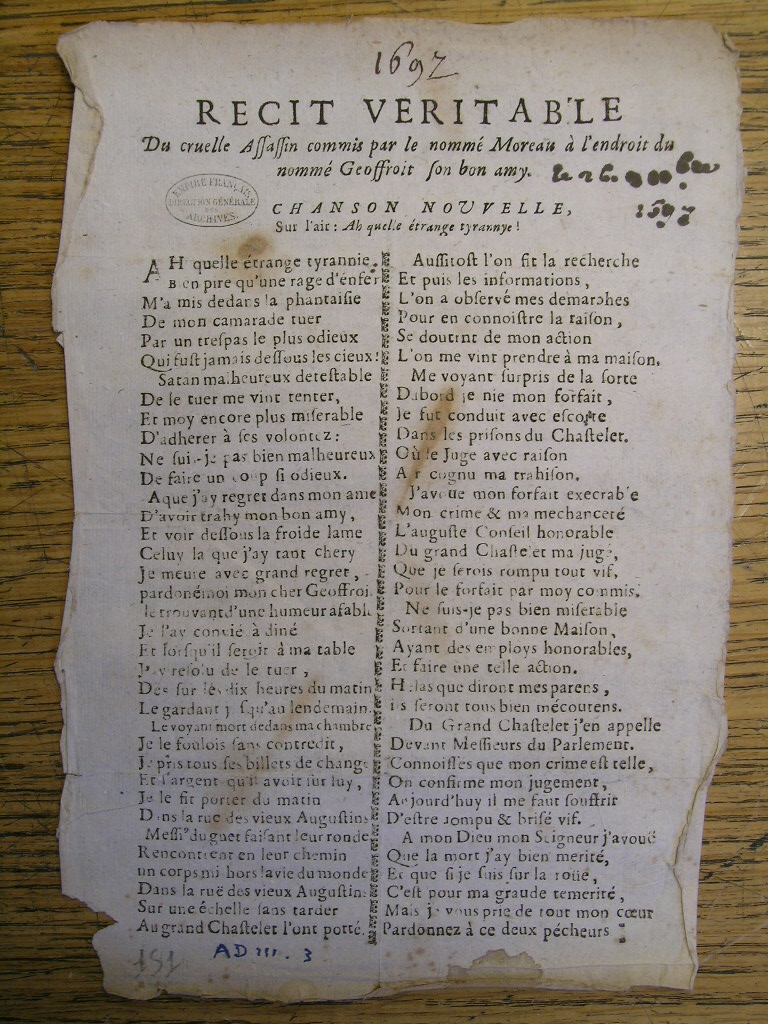 1697
RECIT VERITABLE
Du cruelle Assassin commis par le nommé Moreau à l'endroit du
nommé Geoffroit son bon amy.
1697
EMPIRE FRANÇAIS
DIRECTION GÉNÉRALE
DES
ARCHIVES.
CHANSON NOUVELLE,
Sur l'air : Ah quelle étrange tyrannye !
AH quelle étrange tyrannie.
Bien pire qu'une rage d'énfer
M'a mis dedans la phantaisie
De mon camarade tuer
Par un trespas le plus odieux
Qui fust jamais dessous les cieux!
Satan malheureux detestable
De le tuer me vint tenter,
Et moy encore plus miserable
D'adherer à ses volontez:
Ne suis-je pas bien malheureux
De faire un coup si odieux.
A que j'ay regret dans mon ame
D'avoir trahy mon bon amy,
Et voir dessous la froide lame
Celuy la que j'ay tant chery
Je meure avec grand regret,
pardoné moi mon cher Geoffroi
le trouvant d'une humeur afable
Je l'ay convié à diné
Et lorsqu'il seroit à ma table
J'ay resolu de le tuer,
Dés sur les dix heures du matin
Le gardant jusqu'au lendemain.
Le voyant mort dedans ma chambre
Je le foulois sans contredit,
Je pris tous ses billets de change
Et l'argent qu'il avoit sur luy,
Je le fit porter du matin
Dans la rue des vieux Augustins
Messrs du guet faisant leur ronde
Rencontrent en leur chemin
un corps mi hors la vie du monde
Dans la ruë des vieux Augustins
Sur une échelle sans tarder
Au grand Chastelet l'ont porté.
Aussitost l'on fit la recherche
Et puis les informations,
L'on a observé mes demarches
Pour en connoistre la raison,
Se doutent de mon action
L'on me vint prendre à ma maison.
Me voyant surpris de la sorte
Dabord je nie mon forfait,
Je fut conduit avec escorte
Dans les prisons du Chastelet.
Où le Juge avec raison
A cognu ma trahison.
J'avoue mon forfait execrable
Mon crime & ma mechanceté
L'auguste Conseil honorable
Du grand Chastelet ma jugé,
Que je serois rompu tout vif,
Pour le forfait par moy commis.
Ne suis-je pas bien miserable
Sortant d'une bonne Maison,
Ayant des employs honorables,
Et faire une telle action.
Helas que diront mes parens,
ils seront tous bien mécontens.
Du Grand Chastelet j'en appelle
Devant Messieurs du Parlement.
Connoisses que mon crime est telle,
On confirme mon jugement,
Aujourd'huy il me faut souffrir
D'estre rompu & brisé vif.
A mon Dieu mon Seigneur j'avoué
Que la mort j'ay bien merité,
Et que si je suis sur la roüe,
C'est pour ma graude temerité,
Mais je vous prie de tout mon cœur
Pardonnez à ce deux pécheurs
181
AD III. 3